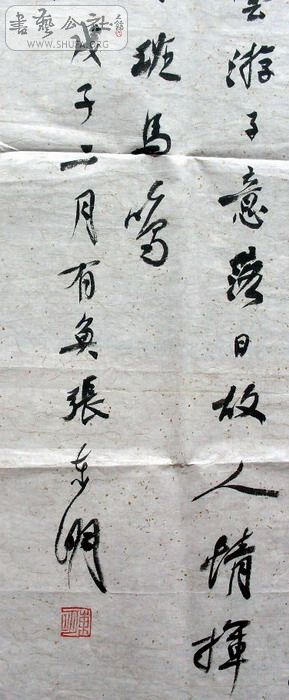 雲游子意落日故人情揮
班马鸣
戊子二月有奂張东明
書藝公社
www.SHUFA.ORG